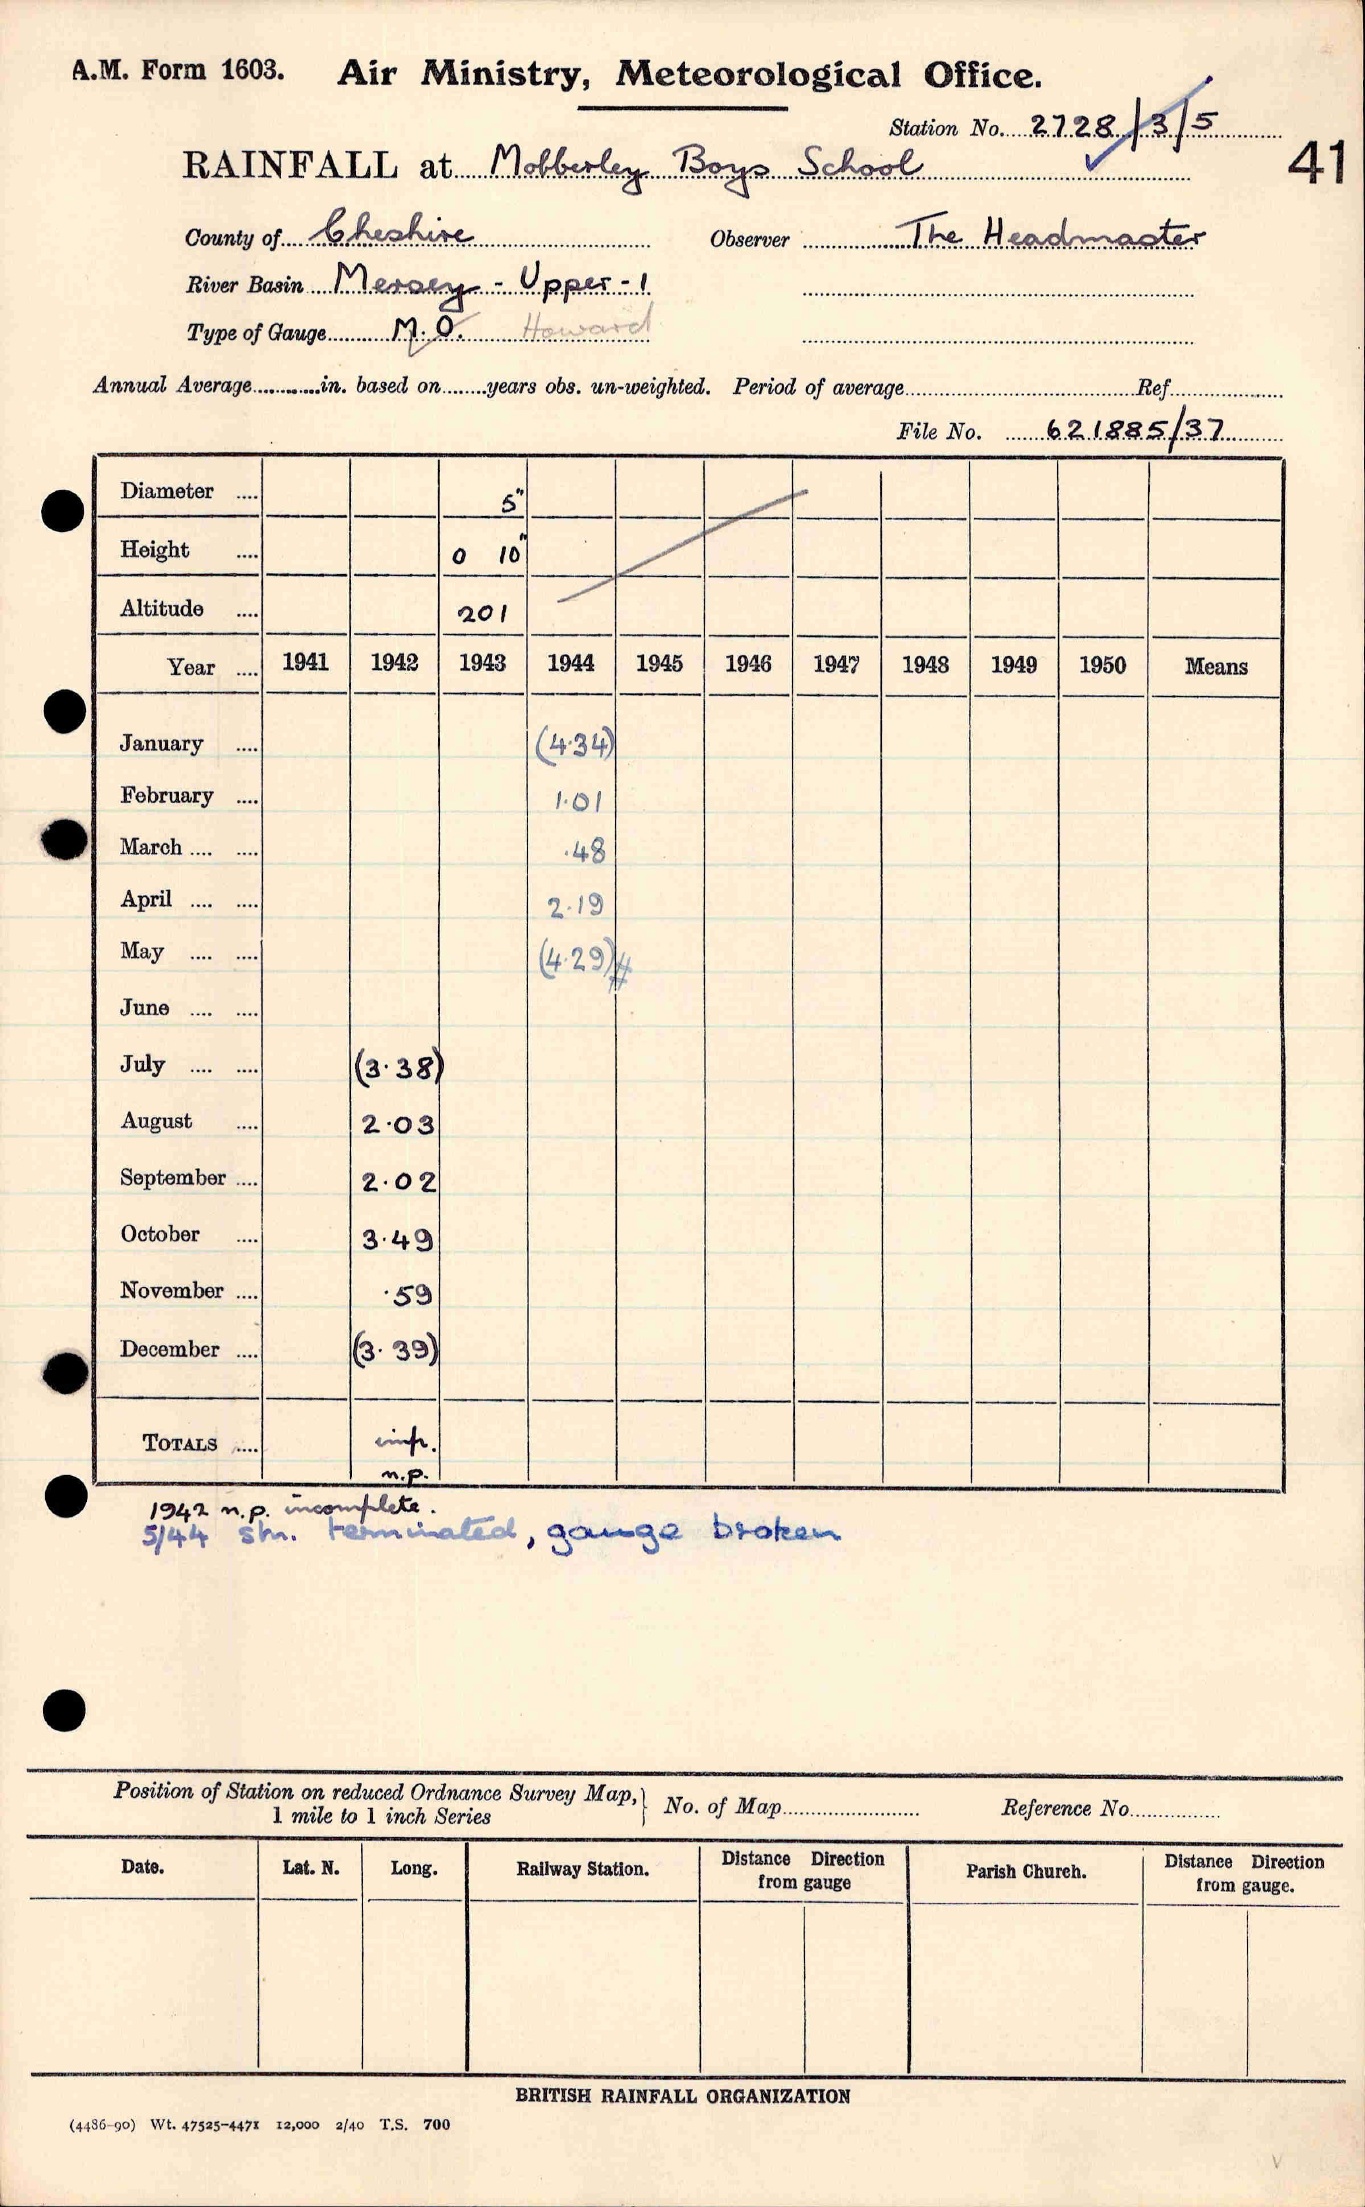 A.M. Form 1603. Air Ministry, Meteorological Office.
Station No. 2728/3/5
41
RAINFALL at Mobberley Boys School
County of Cheshire Observer The Headmaster
River Basin Mersey - Upper - 1
Type of Gauge M.O. Howard
Annual Average in. based on years obs. un-weighted. Period of average Ref.
File No. 621885/37
Diameter 5"
Height 0 10"
Altitude 201
Year 1941 1942 1943 1944 1945 1946 1947 1948 1949 1950 Means
January (4·34)
February 1·01
March ·48
April 2·19
May (4·29)#
June
July (3·38)
August 2·03
September 2·02
October 3·49
November ·59
December (3·39)
TOTALS imp.
n.p.
1942 n.p. incomplete.
5/44 stn. terminated, gauge broken
Position of Station on reduced Ordnance Survey Map, } No. of Map Reference No.
1 mile to 1 inch Series
Date. Lat. N. Long. Railway Station. Distance Direction from gauge Parish Church. Distance Direction from gauge.
BRITISH RAINFALL ORGANIZATION
(4486-90) Wt. 47525-4471 12,000 2/40 T.S. 700